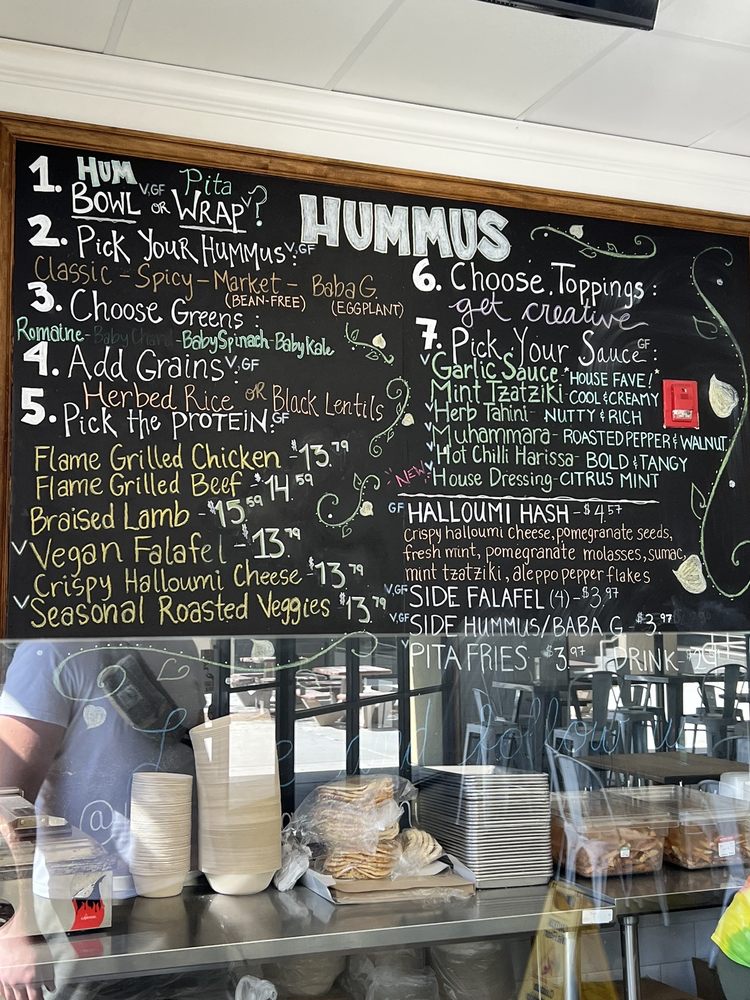 HUMMUS
1. HUM V,GF Pita V
BOWL OR WRAP?
2. Pick Your Hummus: V,GF
Classic - Spicy - Market - Baba G.
(BEAN-FREE) (EGGPLANT)
3. Choose Greens:
Romaine - Baby Chard - Baby Spinach - Baby Kale
4. Add Grains: V,GF
Herbed Rice OR Black Lentils
5. Pick the PROTEIN: GF
Flame Grilled Chicken - $13.79
Flame Grilled Beef - $14.59
Braised Lamb - $15.59
V Vegan Falafel - $13.79
Crispy Halloumi Cheese - $13.79
V Seasonal Roasted Veggies $13.79
6. Choose Toppings:
get creative
7. Pick Your Sauce: GF
V Garlic Sauce *HOUSE FAVE!*
Mint Tzatziki - COOL & CREAMY
V Herb Tahini - NUTTY & RICH
V Muhammara - ROASTED PEPPER & WALNUT
V Hot Chilli Harissa - BOLD & TANGY
NEW! V House Dressing - CITRUS MINT
GF HALLOUMI HASH - $4.57
crispy halloumi cheese, pomegranate seeds,
fresh mint, pomegranate molasses, sumac,
mint tzatziki, aleppo pepper flakes
V,GF SIDE FALAFEL (4) - $3.97
V,GF SIDE HUMMUS/BABA G - $3.97
V PITA FRIES - $3.97 DRINK
and follow
@